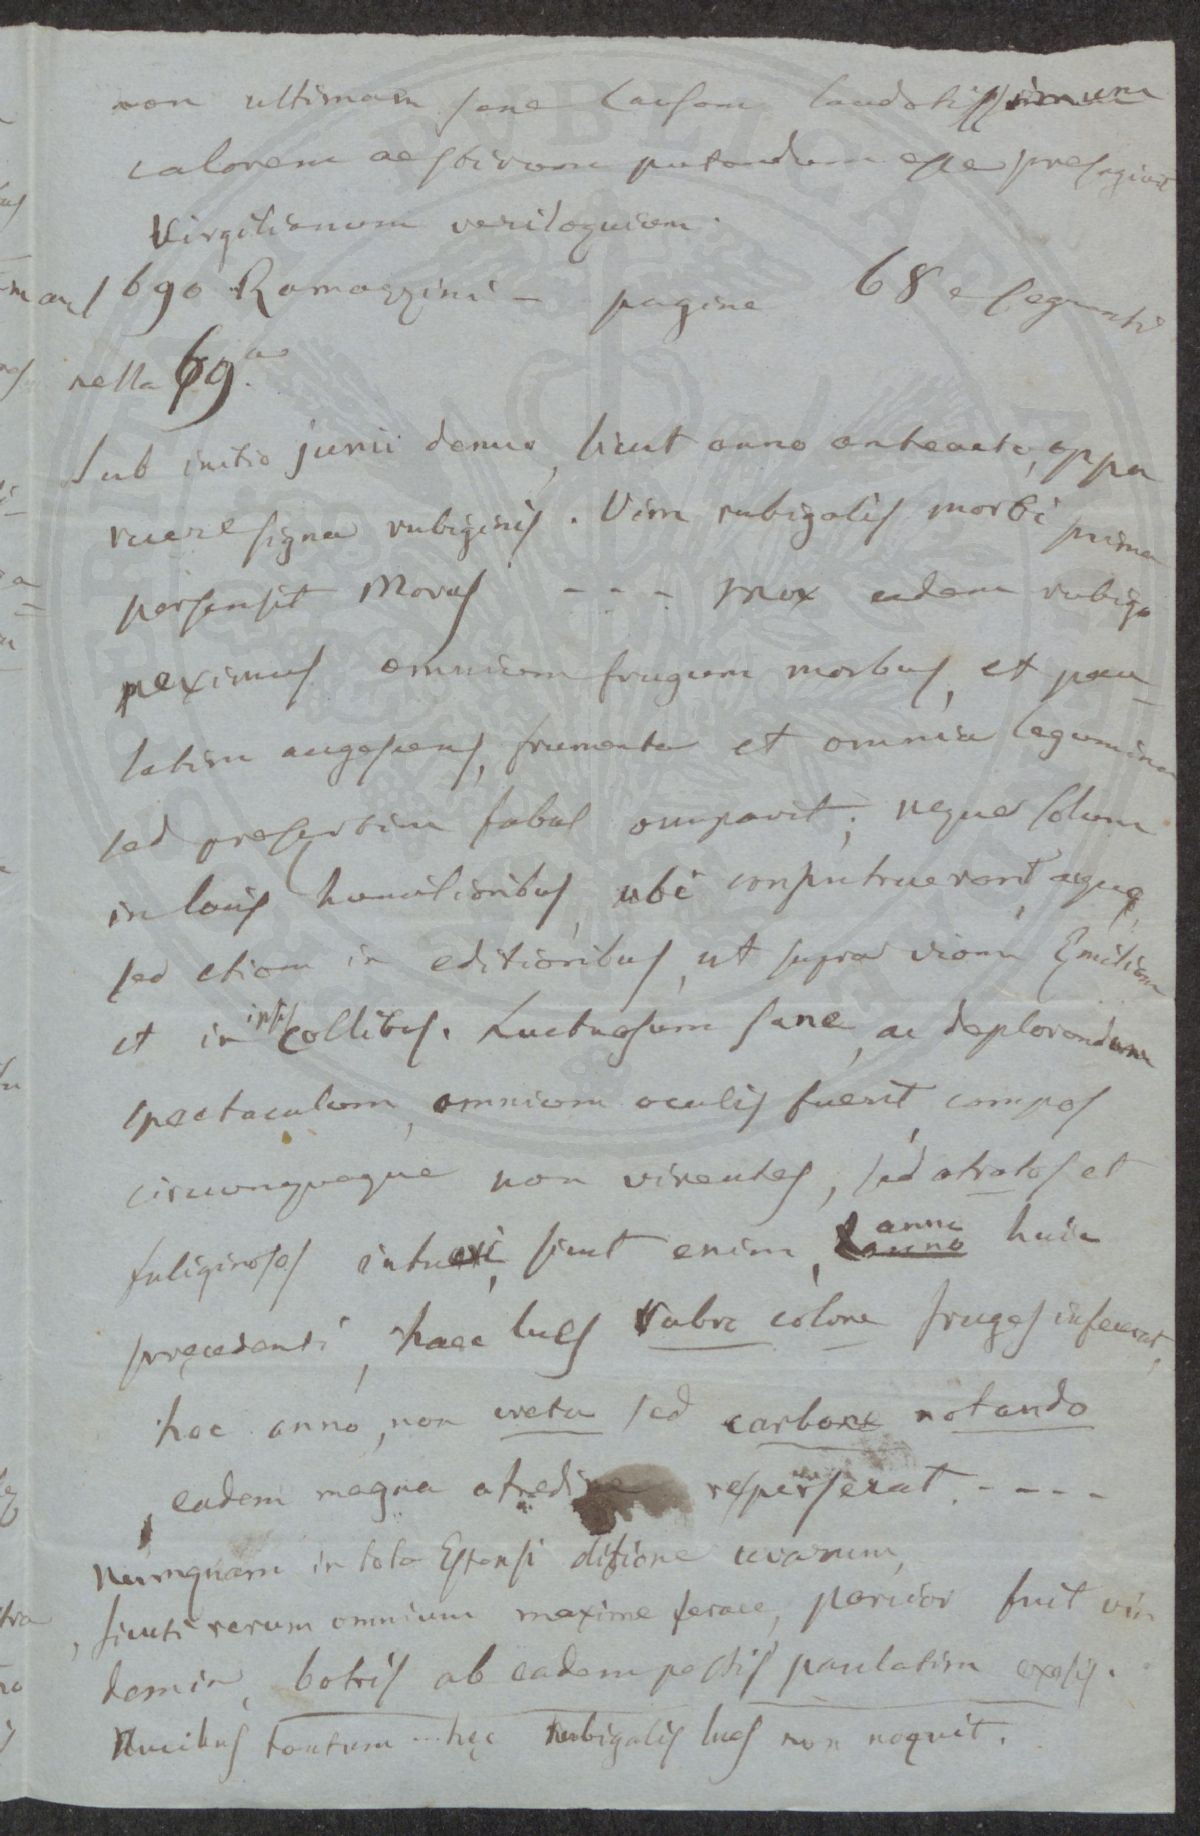 non ultimam sane causam laudatissimum
calorem aestivum putandum esse presagiunt
Virgilianum veriloquium.
1690 Ramazzini - pagine 68 e seguenti
nella 69.a
Sub initio junii denuo, sicut anno anteacto, appa
ruere signa rubiginis. Vim rubigalis morbi prima
persensit Morus - - - mox eadem rubigo
pexismus omnium frugum morbus, et pau-
latim augescens, frumenta et omnia legumina
sed presertim fabas occupavit; neque solum
in locis humilioribus, ubi computruerant aquę,
sed etiam in editioribus, ut supra viam Emiliam
et in ipsis collibus. Luctuosum sane, ac deplorandum
spectaculum, omnium oculis fuerit, campos
circumquaque non virentes, sed atratos et
fuliginosos intueri, sicut enim, anno huic
pręcedenti, haec lues rubro colore fruges infecerat,
hoc anno, non creta sed carbone notando
eadem magna atredine resperserat. - - - -
Numquam in tota Estensi ditione uvarum,
sicuti rerum omnium maxime ferace, parcior fuit vin
demia, botris ab eadem pestis paulatim exesis.
Nucibus tantum ... hęc rubigalis lues non nocuit.